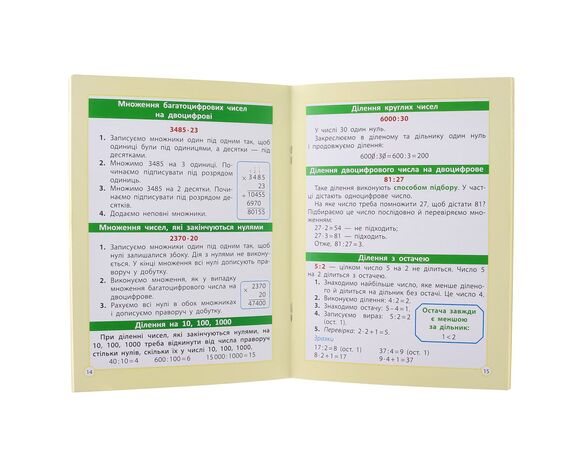 Множення багатоцифрових чисел
на двоцифрові
3485·23
1. Записуємо множники один під одним так, щоб
одиниці були під одиницями, а десятки — під
десятками.
2. Множимо 3485 на 3 одиниці. По-
чинаємо підписувати під розрядом
одиниць.
3. Множимо 3485 на 2 десятки. Почи-
наємо підписувати під розрядом де-
сятків.
4. Додаємо неповні множники.
× 3485
23
+ 10455
6970
80155
Множення чисел, які закінчуються нулями
2370·20
1. Записуємо множники один під одним так, щоб
нулі залишалися збоку. Дія з нулями не викону-
ється. У кінці множення всі нулі дописують пра-
воруч у добутку.
2. Виконуємо множення, як у випадку
множення багатоцифрового числа на
двоцифрове.
3. Рахуємо всі нулі в обох множниках
і дописуємо праворуч у добутку.
× 2370
20
47400
Ділення на 10, 100, 1000
При діленні чисел, які закінчуються нулями, на
10, 100, 1000 треба відкинути від числа праворуч
стільки нулів, скільки їх у числі 10, 100, 1000.
40:10=4 600:100=6 15000:1000=15
14
Ділення круглих чисел
6000:30
У числі 30 один нуль.
Закреслюємо в діленому та дільнику один нуль
і продовжуємо ділення:
6000:30=600:3=200
Ділення двоцифрового числа на двоцифрове
81:27
Таке ділення виконують способом підбору. У част-
ці дістають одноцифрове число.
На яке число треба помножити 27, щоб дістати 81?
Підбираємо це число послідовно й перевіряємо мно-
женням:
27·2=54 — не підходить;
27·3=81 — підходить.
Отже, 81:27=3.
Ділення з остачею
5:2 — цілком число 5 на 2 не ділиться. Число 5
на 2 ділиться з остачею.
1. Знаходимо найбільше число, яке менше ділено-
го й ділиться на дільник без остачі. Це число 4.
2. Виконуємо ділення: 4:2=2.
3. Знаходимо остачу: 5−4=1.
4. Записуємо вираз: 5:2=2
(ост. 1).
5. Перевірка: 2·2+1=5.
Остача завжди
є меншою
за дільник:
1<2
Зразки
17:2=8 (ост. 1) 37:4=9 (ост. 1)
8·2+1=17 9·4+1=37
15